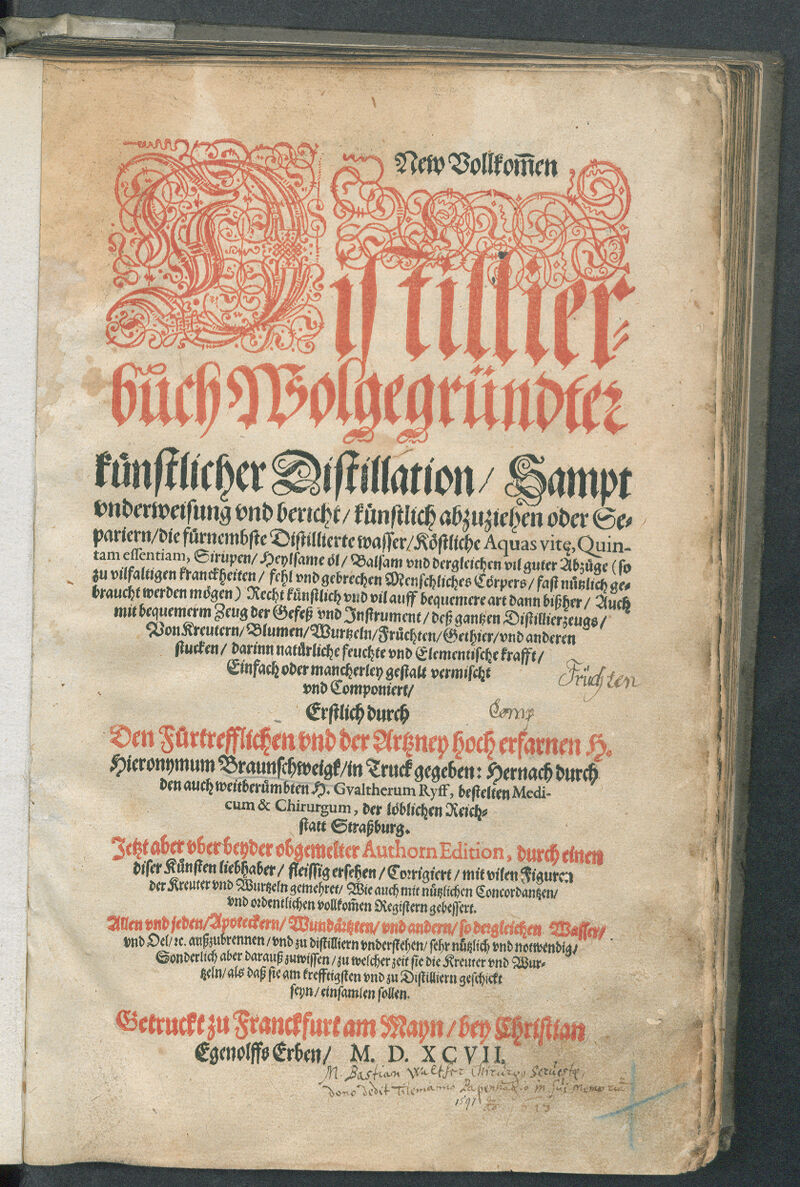 New Vollkom̃en
Distillier⸗
bůch Wolgegründter
künstlicher Distillation/ Sampt
vnderweisung vnd bericht/ künstlich abzuziehen oder Se⸗
pariern/die fürnembste Distillierte wasser/Köstliche Aquas vitę, Quin-
tam essentiam, Sirupen/ Heylsame öl/ Balsam vnd dergleichen vil guter Abzüge (so
zu vilfaltigen kranckheiten/ fehl vnd gebrechen Menschliches Cörpers/ fast nützlich ge⸗
braucht werden mögen) Recht künstlich vnd vil auff bequemere art dann bißher/ Auch
mit bequemerm Zeug der Gefeß vnd Instrument/ deß gantzen Distillierzeugs/
Von Kreutern/ Blumen/ Wurtzeln/ Früchten/ Gethier/ vnd anderen
stucken/ darinn natürliche feuchte vnd Elementische krafft/
Einfach oder mancherley gestalt vermischt
vnd Componiert/
Früchten
Erstlich durch
Comp
Den Fürtrefflichen vnd der Artzney hoch erfarnen H.
Hieronymum Braunschweigk/in Truck gegeben: Hernach durch
den auch weitberůmbten H. Gvaltherum Ryff, bestelten Medi-
cum & Chirurgum, der löblichen Reich⸗
statt Straßburg.
Jetzt aber vber beyder obgemelter Authorn Edition, durch einen
diser Künsten liebhaber/ fleissig ersehen/ Corrigiert/ mit vilen Figuren
der Kreuter vnd Wurtzeln gemehret/ Wie auch mit nützlichen Concordantzen/
vnd ordentlichen vollkom̃en Registern gebessert.
Allen vnd jeden/Apoteckern/ Wundärtzten/ vnd andern/ so dergleichen Wasser/
vnd Oel/ ꝛc. außzubrennen/ vnd zu distilliern vnderstehen/ sehr nützlich vnd notwendig/
Sonderlich aber darauß zuwissen/ zu welcher zeit sie die Kreuter vnd Wur⸗
tzeln/ als daß sie am krefftigsten vnd zu Distilliern geschickt
seyn/ einsamlen sollen.
Getruckt zu Franckfurt am Mayn/ bey Christian
Egenolffs Erben/ M. D. XCVII.
M. Bastian Walther Chirurg
dono dedit Tilemanno in sui memoria